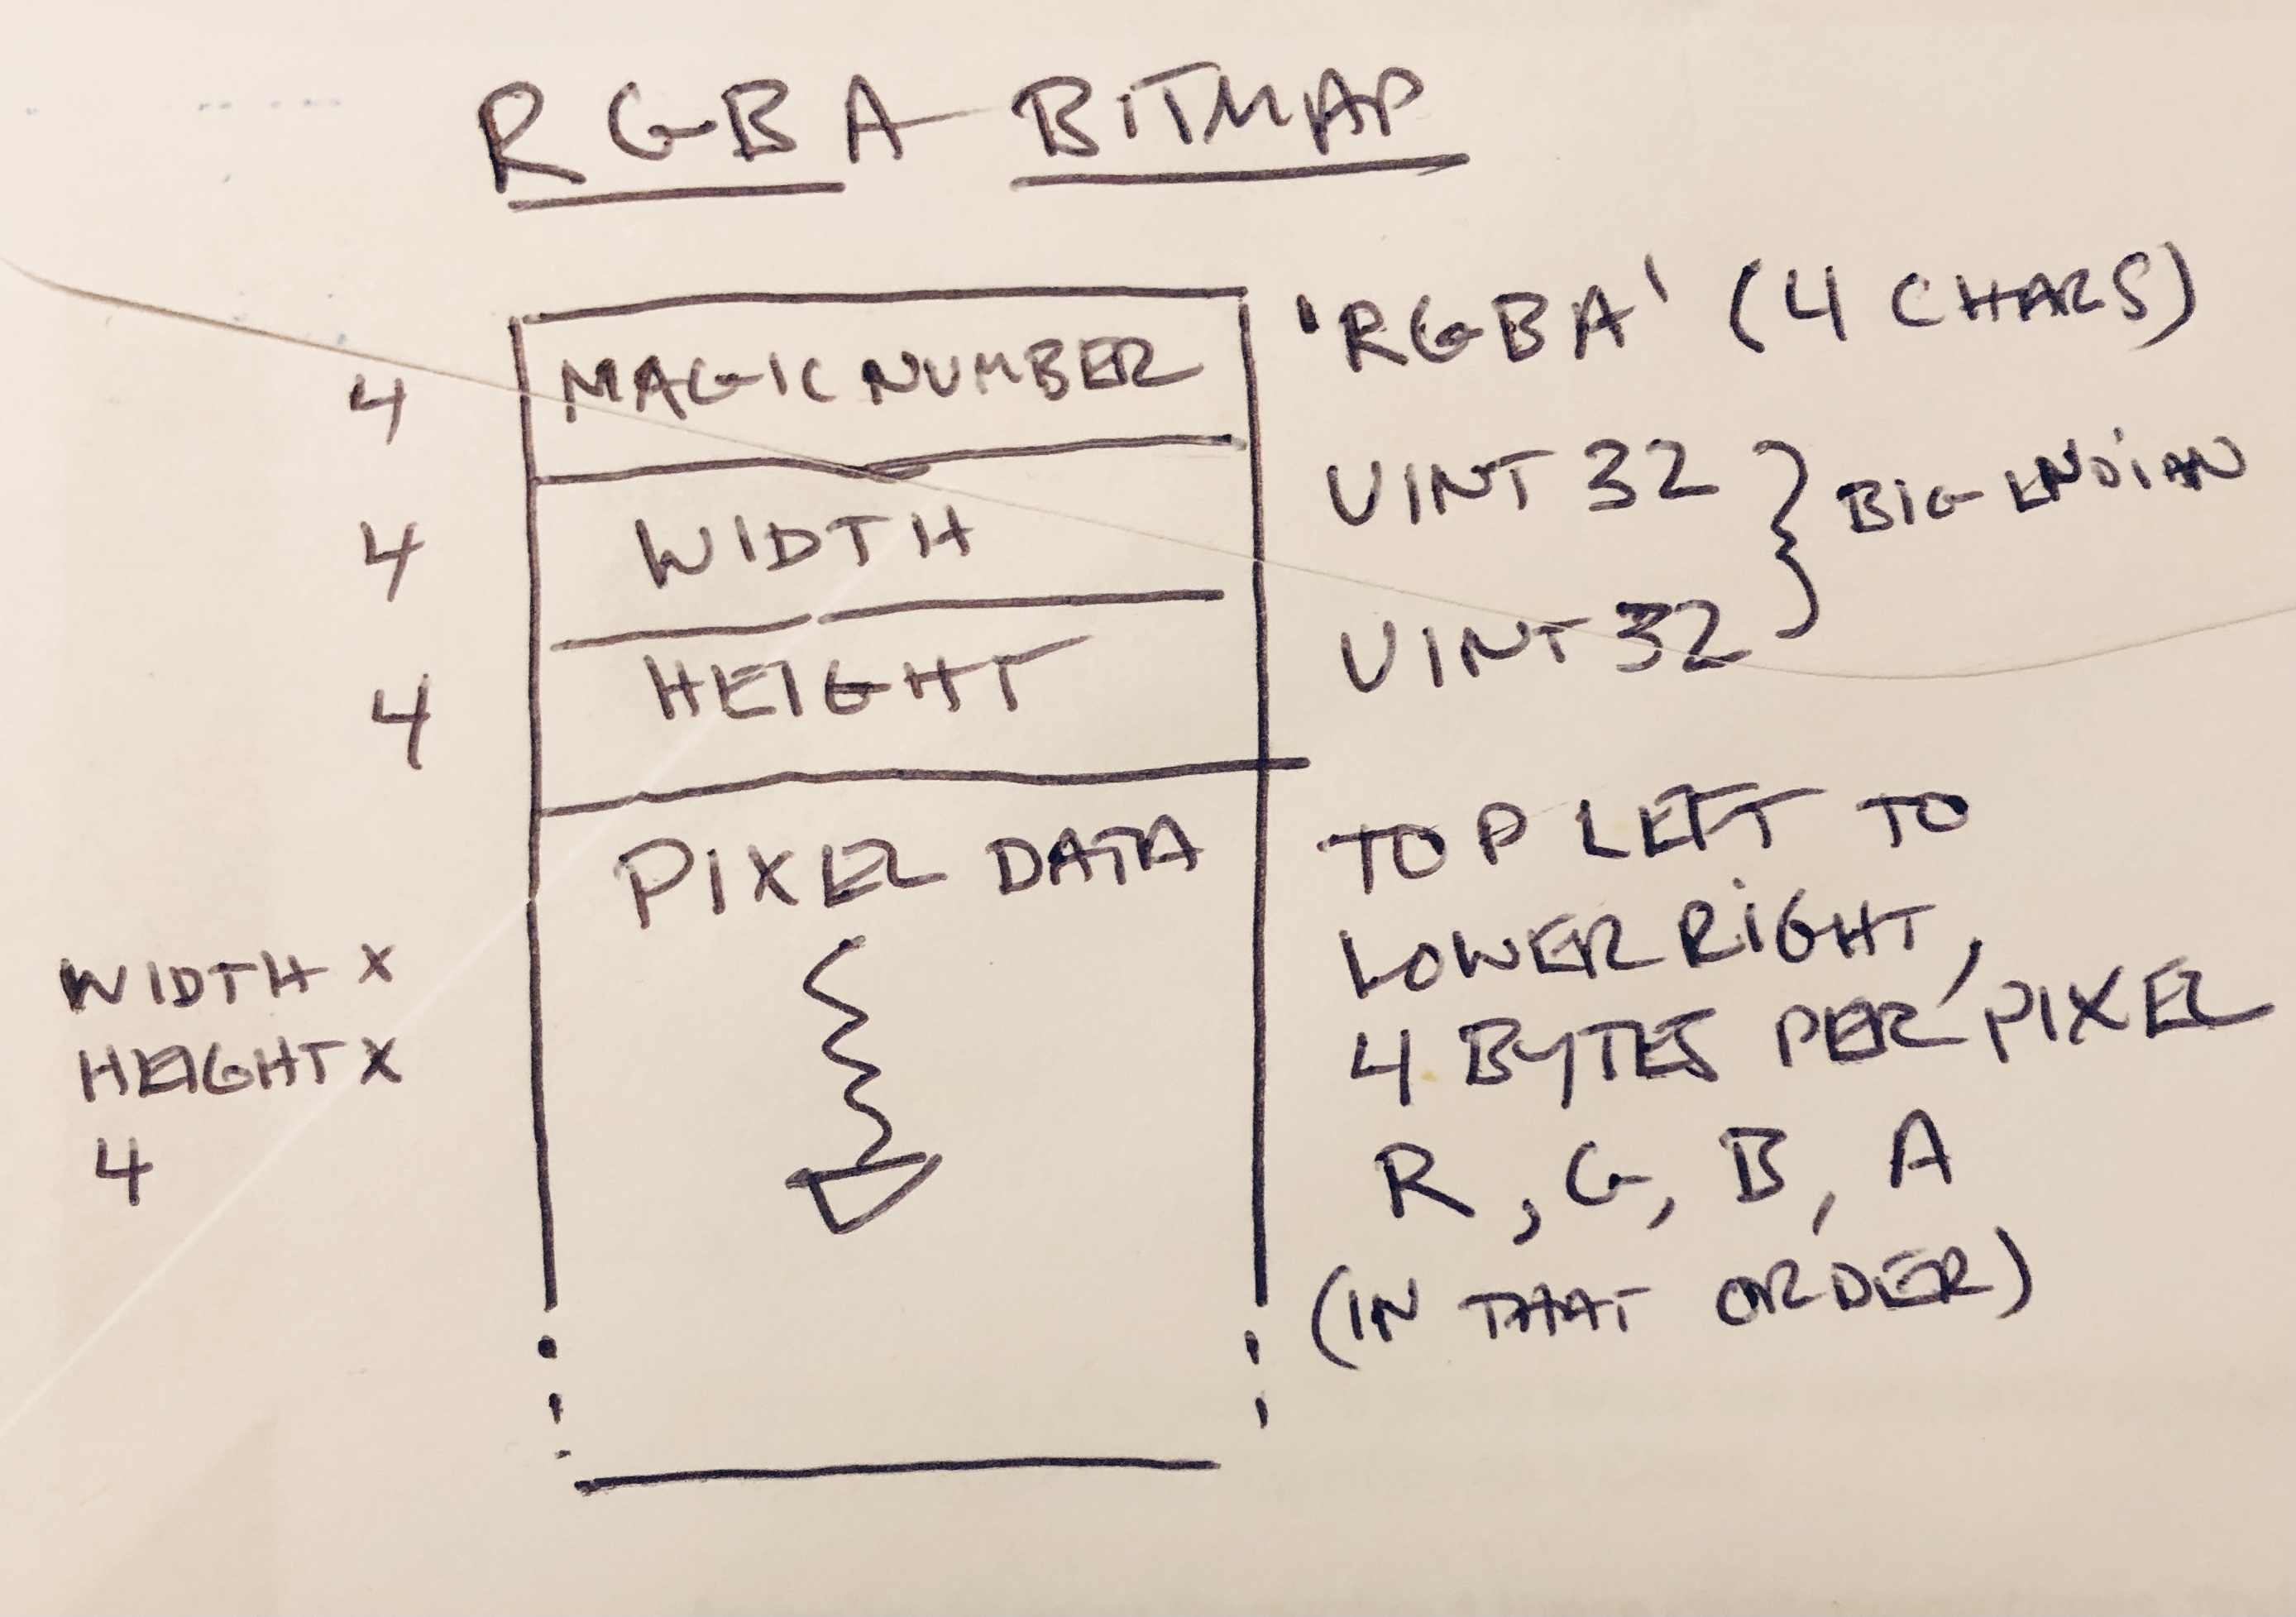 RGBA BITMAP
4 MAGIC NUMBER 'RGBA' (4 CHARS)
4 WIDTH UINT 32 } BIG ENDIAN
4 HEIGHT UINT 32
PIXEL DATA TOP LEFT TO
WIDTH X LOWER RIGHT,
HEIGHT X 4 BYTES PER PIXEL
4 R, G, B, A
(IN THAT ORDER)